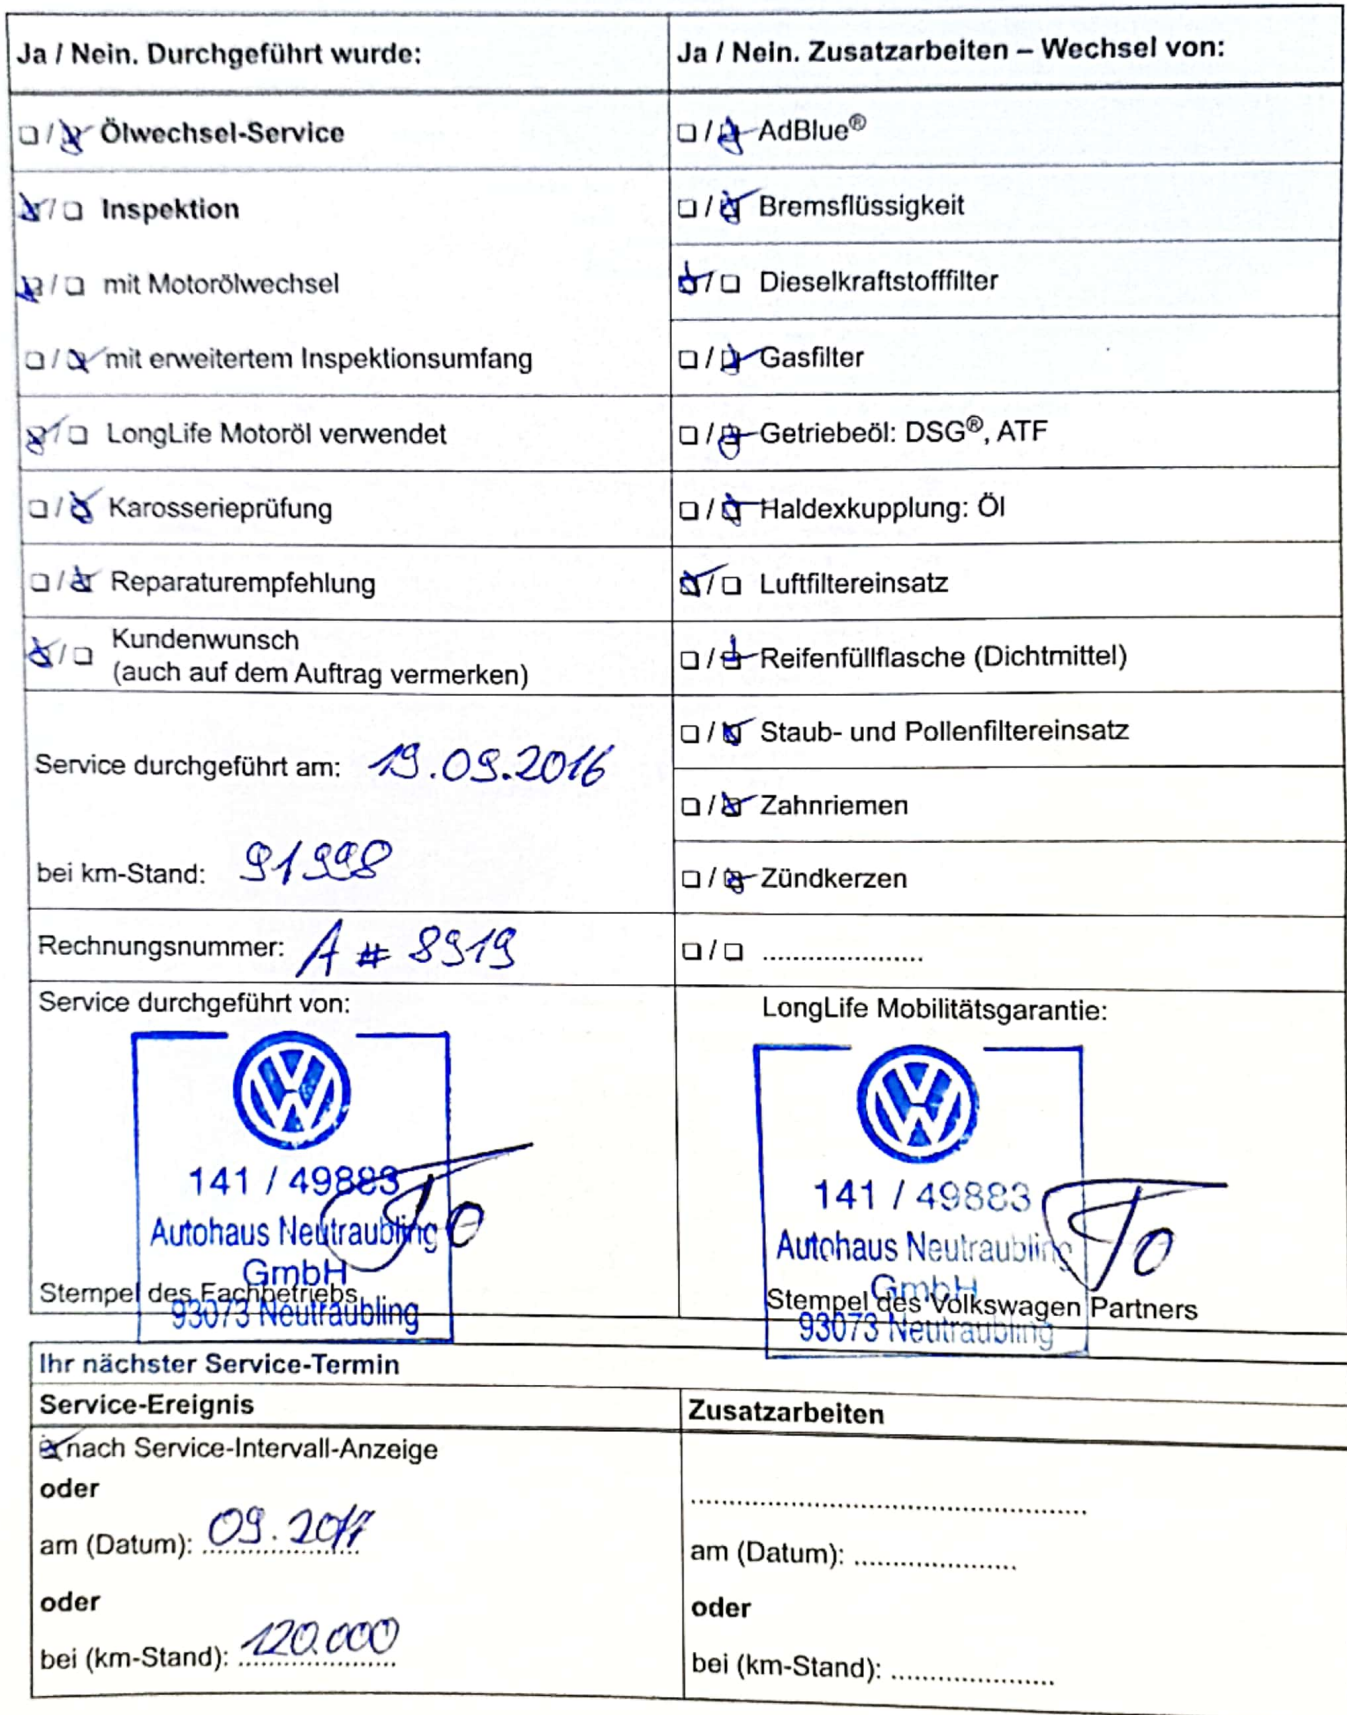 Ja / Nein. Durchgeführt wurde:
☐ / ☒ Ölwechsel-Service
☒ / ☐ Inspektion
☒ / ☐ mit Motorölwechsel
☐ / ☒ mit erweitertem Inspektionsumfang
☒ / ☐ LongLife Motoröl verwendet
☐ / ☒ Karosserieprüfung
☐ / ☒ Reparaturempfehlung
☒ / ☐ Kundenwunsch
(auch auf dem Auftrag vermerken)
Service durchgeführt am: 19.09.2016
bei km-Stand: 91998
Rechnungsnummer: A # 8919
Service durchgeführt von:
VW
141 / 49883
Autohaus Neutraubling
GmbH
Stempel des Fachbetriebs
93073 Neutraubling
To
Ja / Nein. Zusatzarbeiten – Wechsel von:
☐ / ☒ AdBlue®
☐ / ☒ Bremsflüssigkeit
☒ / ☐ Dieselkraftstofffilter
☐ / ☒ Gasfilter
☐ / ☒ Getriebeöl: DSG®, ATF
☐ / ☒ Haldexkupplung: Öl
☒ / ☐ Luftfiltereinsatz
☐ / ☒ Reifenfüllflasche (Dichtmittel)
☐ / ☒ Staub- und Pollenfiltereinsatz
☐ / ☒ Zahnriemen
☐ / ☒ Zündkerzen
☐ / ☐ ......................
LongLife Mobilitätsgarantie:
VW
141 / 49883
Autohaus Neutraubling
GmbH
Stempel des Volkswagen Partners
93073 Neutraubling
To
Ihr nächster Service-Termin
Service-Ereignis
☒ nach Service-Intervall-Anzeige
oder
am (Datum): 09.2017
oder
bei (km-Stand): 120.000
Zusatzarbeiten
......................................................
am (Datum): ......................
oder
bei (km-Stand): ......................